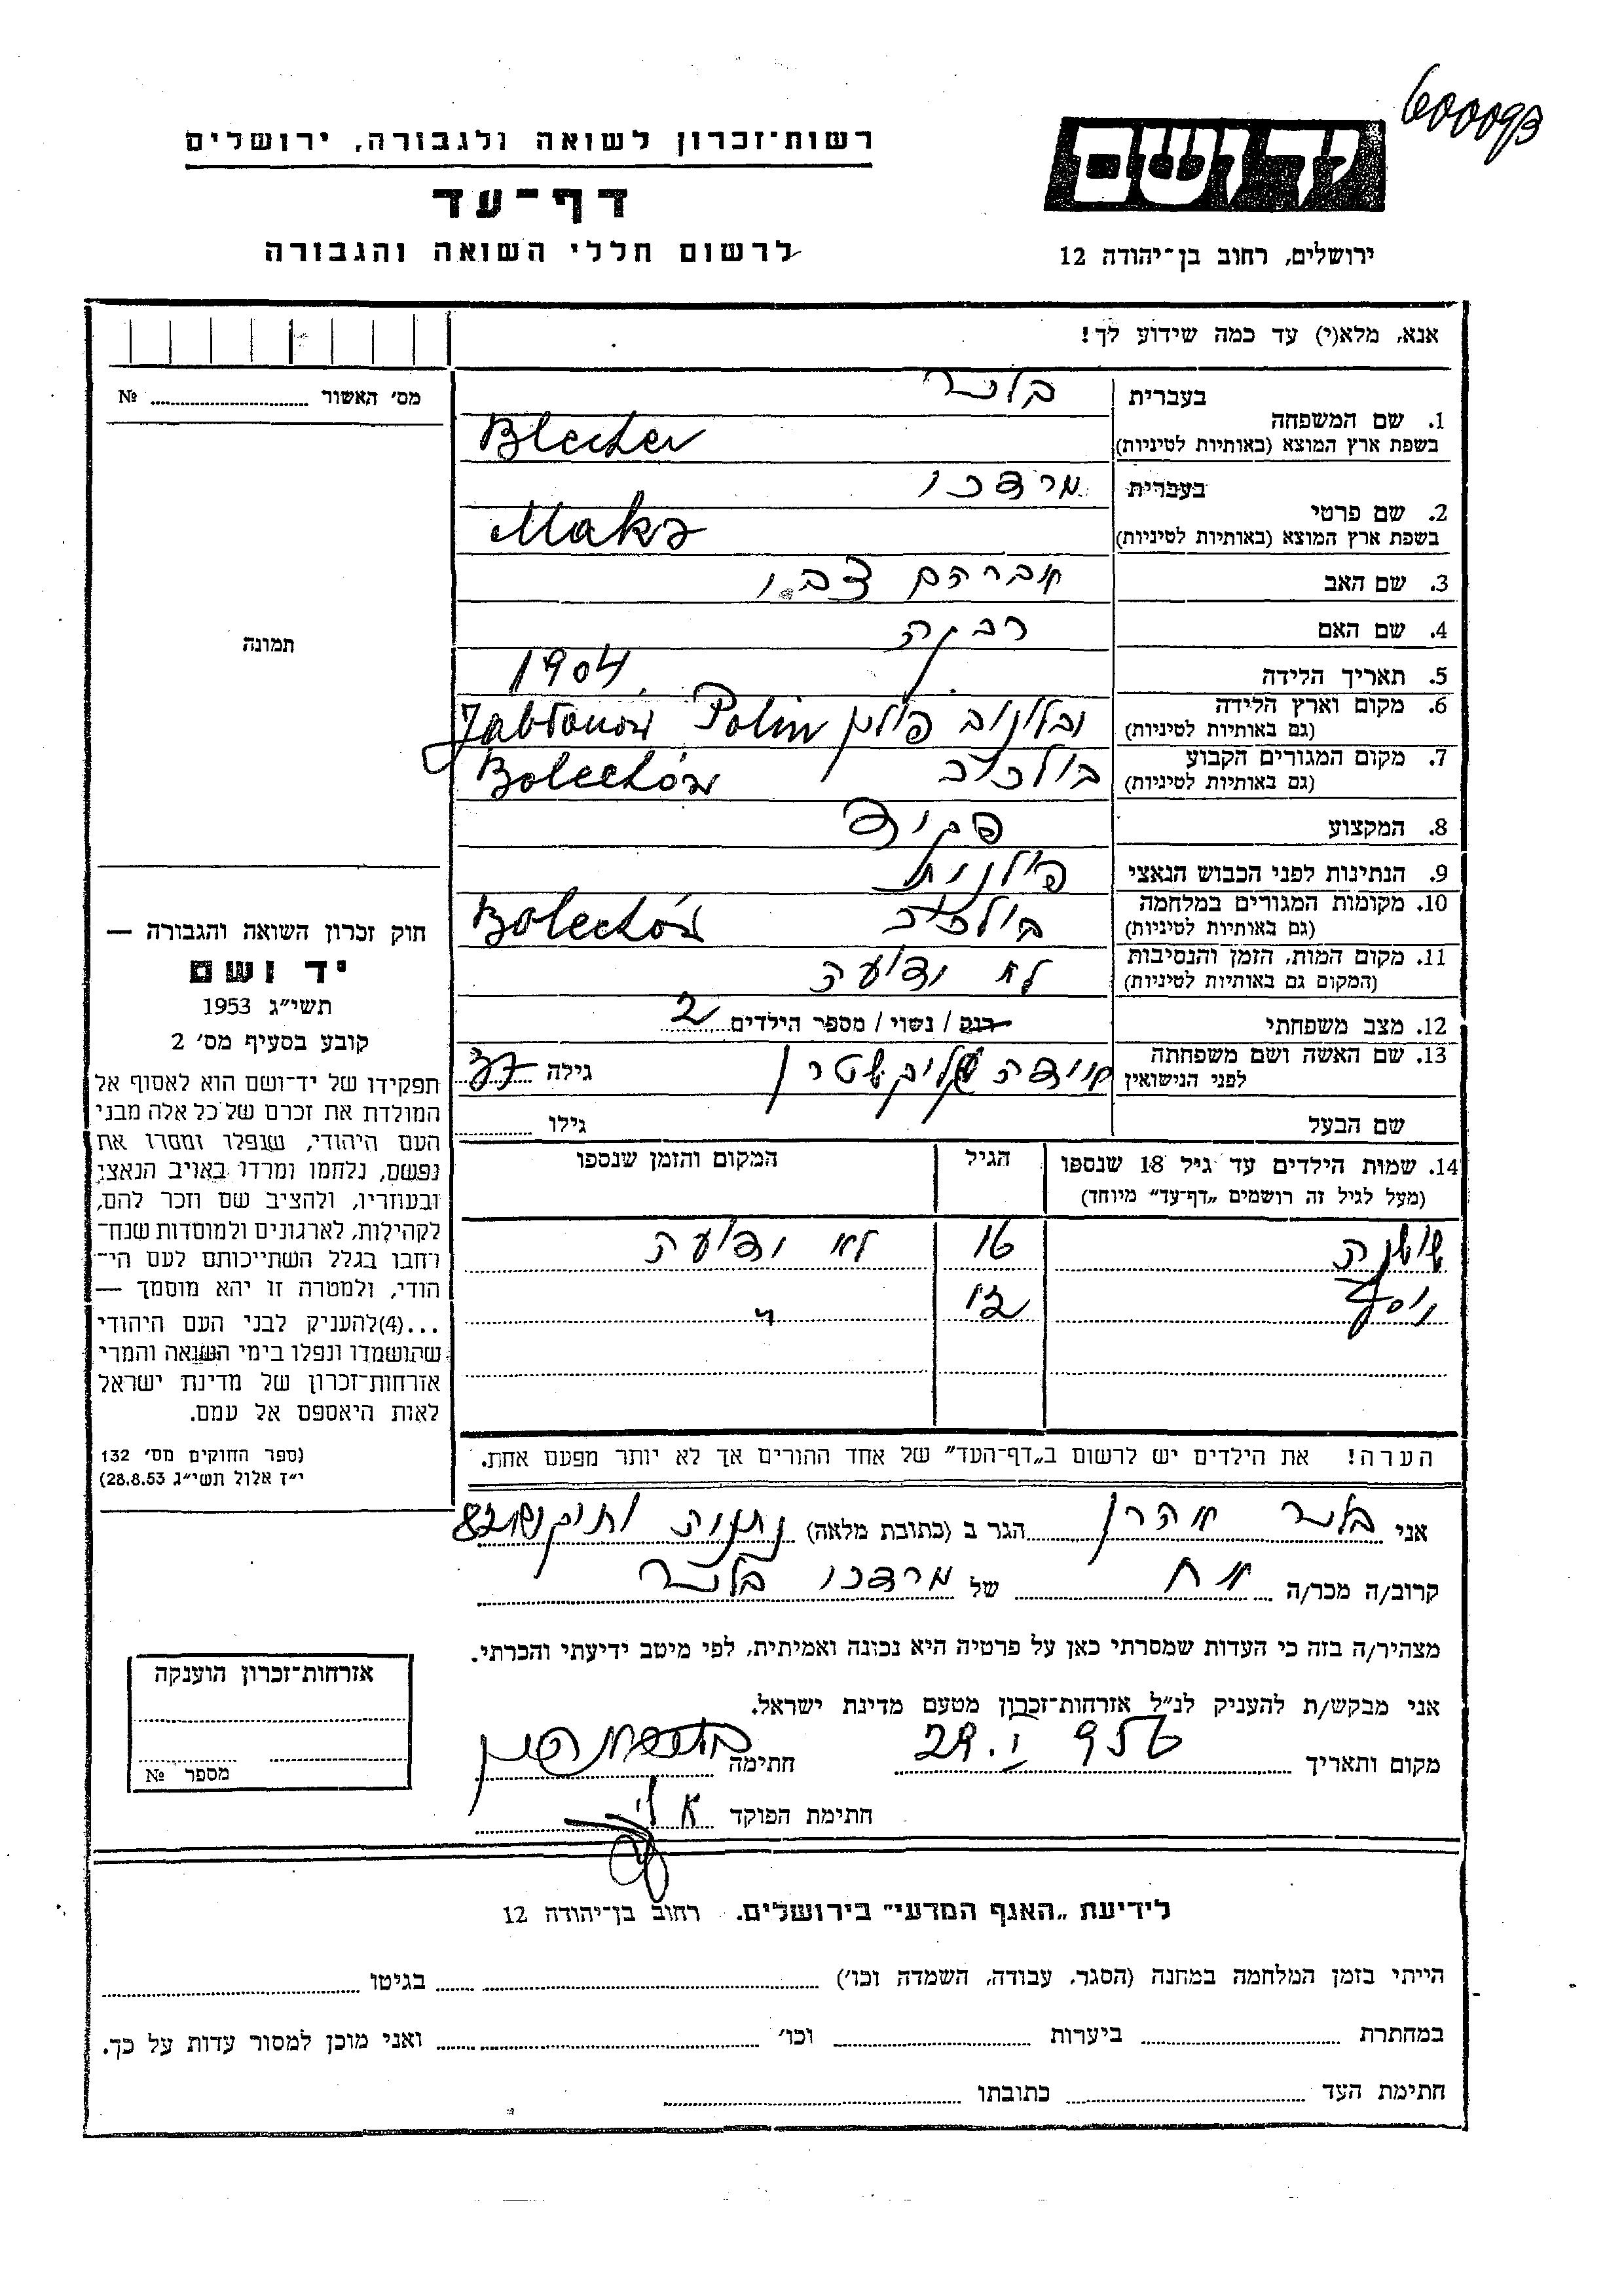 600093
רשות־זכרון לשואה ולגבורה, ירושלים
דף־עד
לרשום חללי השואה והגבורה
ידושם
ירושלים, רחוב בן־יהודה 12
אנא, מלא(י) עד כמה שידוע לך!
מס׳ האשור № 
בעברית בלכר
1. שם המשפחה
בשפת ארץ המוצא (באותיות לטיניות) Blecher
בעברית מרדכי
2. שם פרטי
בשפת ארץ המוצא (באותיות לטיניות) Maks
3. שם האב אברהם צבי
4. שם האם רבקה
5. תאריך הלידה 1904
6. מקום וארץ הלידה
(גם באותיות לטיניות) יבלונוב פולין Jabłonow Polin
7. מקום המגורים הקבוע
(גם באותיות לטיניות) בולכוב Bolechów
8. המקצוע פקיד
9. הנתינות לפני הכבוש הנאצי פולנית
10. מקומות המגורים במלחמה
(גם באותיות לטיניות) בולכוב Bolechów
11. מקום המות, הזמן והנסיבות
(המקום גם באותיות לטיניות) לא ידועה
12. מצב משפחתי רוק / נשוי / מספר הילדים 2
13. שם האשה ושם משפחתה
לפני הנישואין גילה 37
שם הבעל גילו
14. שמות הילדים עד גיל 18 שנספו
(מעל לגיל זה רושמים „דף־עד״ מיוחד)
הגיל
המקום והזמן שנספו
שושנה לא ידועה
יוסף "
הערה! את הילדים יש לרשום ב„דף־העד״ של אחד ההורים אך לא יותר מפעם אחת.
תמונה
חוק זכרון השואה והגבורה —
יד ושם
תשי״ג 1953
קובע בסעיף מס׳ 2
תפקידו של יד־ושם הוא לאסוף אל
המולדת את זכרם של כל אלה מבני
העם היהודי, שנפלו ומסרו את
נפשם, נלחמו ומרדו באויב הנאצי
ובעוזריו, ולהציב שם וזכר להם,
לקהילות, לארגונים ולמוסדות שנח־
רחבו בגלל השתייכותם לעם הי־
הודי, ולמטרה זו יהא מוסמך —
...(4)להעניק לבני העם היהודי
שהושמדו ונפלו בימי השואה והמרי
אזרחות־זכרון של מדינת ישראל
לאות היאספם אל עמם.
(ספר החוקים מס׳ 132
י״ז אלול תשי״ג 28.8.53)
אני בלכר אהרן הגר ב (כתובת מלאה) נתניה
קרוב/ה מכר/ה אח של מרדכי בלכר
מצהיר/ה בזה כי העדות שמסרתי כאן על פרטיה היא נכונה ואמיתית, לפי מיטב ידיעתי והכרתי.
אני מבקש/ת להעניק לנ״ל אזרחות־זכרון מטעם מדינת ישראל.
מקום ותאריך חתימה
חתימת הפוקד
אזרחות־זכרון הוענקה
מספר №
לידיעת „האגף המדעי״ בירושלים. רחוב בן־יהודה 12
הייתי בזמן המלחמה במחנה (הסגר, עבודה, השמדה וכו׳) בגיטו
במחתרת ביערות וכו׳ ואני מוכן למסור עדות על כך.
חתימת העד כתובתו